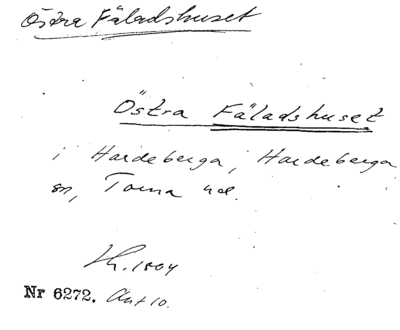 Östra Fäladshuset
Östra Fäladshuset
i Hardeberga, Hardeberga
sn, Torna hd.
Nr 6272.